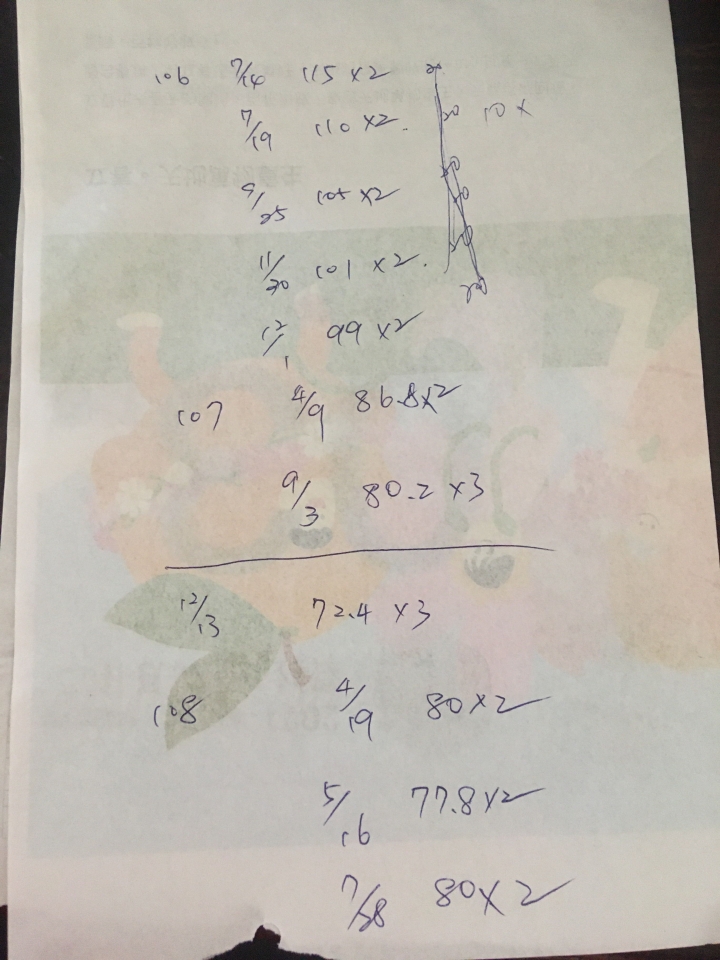 106 7/14 115 x2
7/19 110 x2.
20 10 x
9/25 105 x2
11/20 101 x2.
12/1 99 x2
107 4/9 86.8x2
9/3 80.2 x3
12/13 72.4 x3
108 4/19 80x2
5/16 77.8x2
7/28 80x2